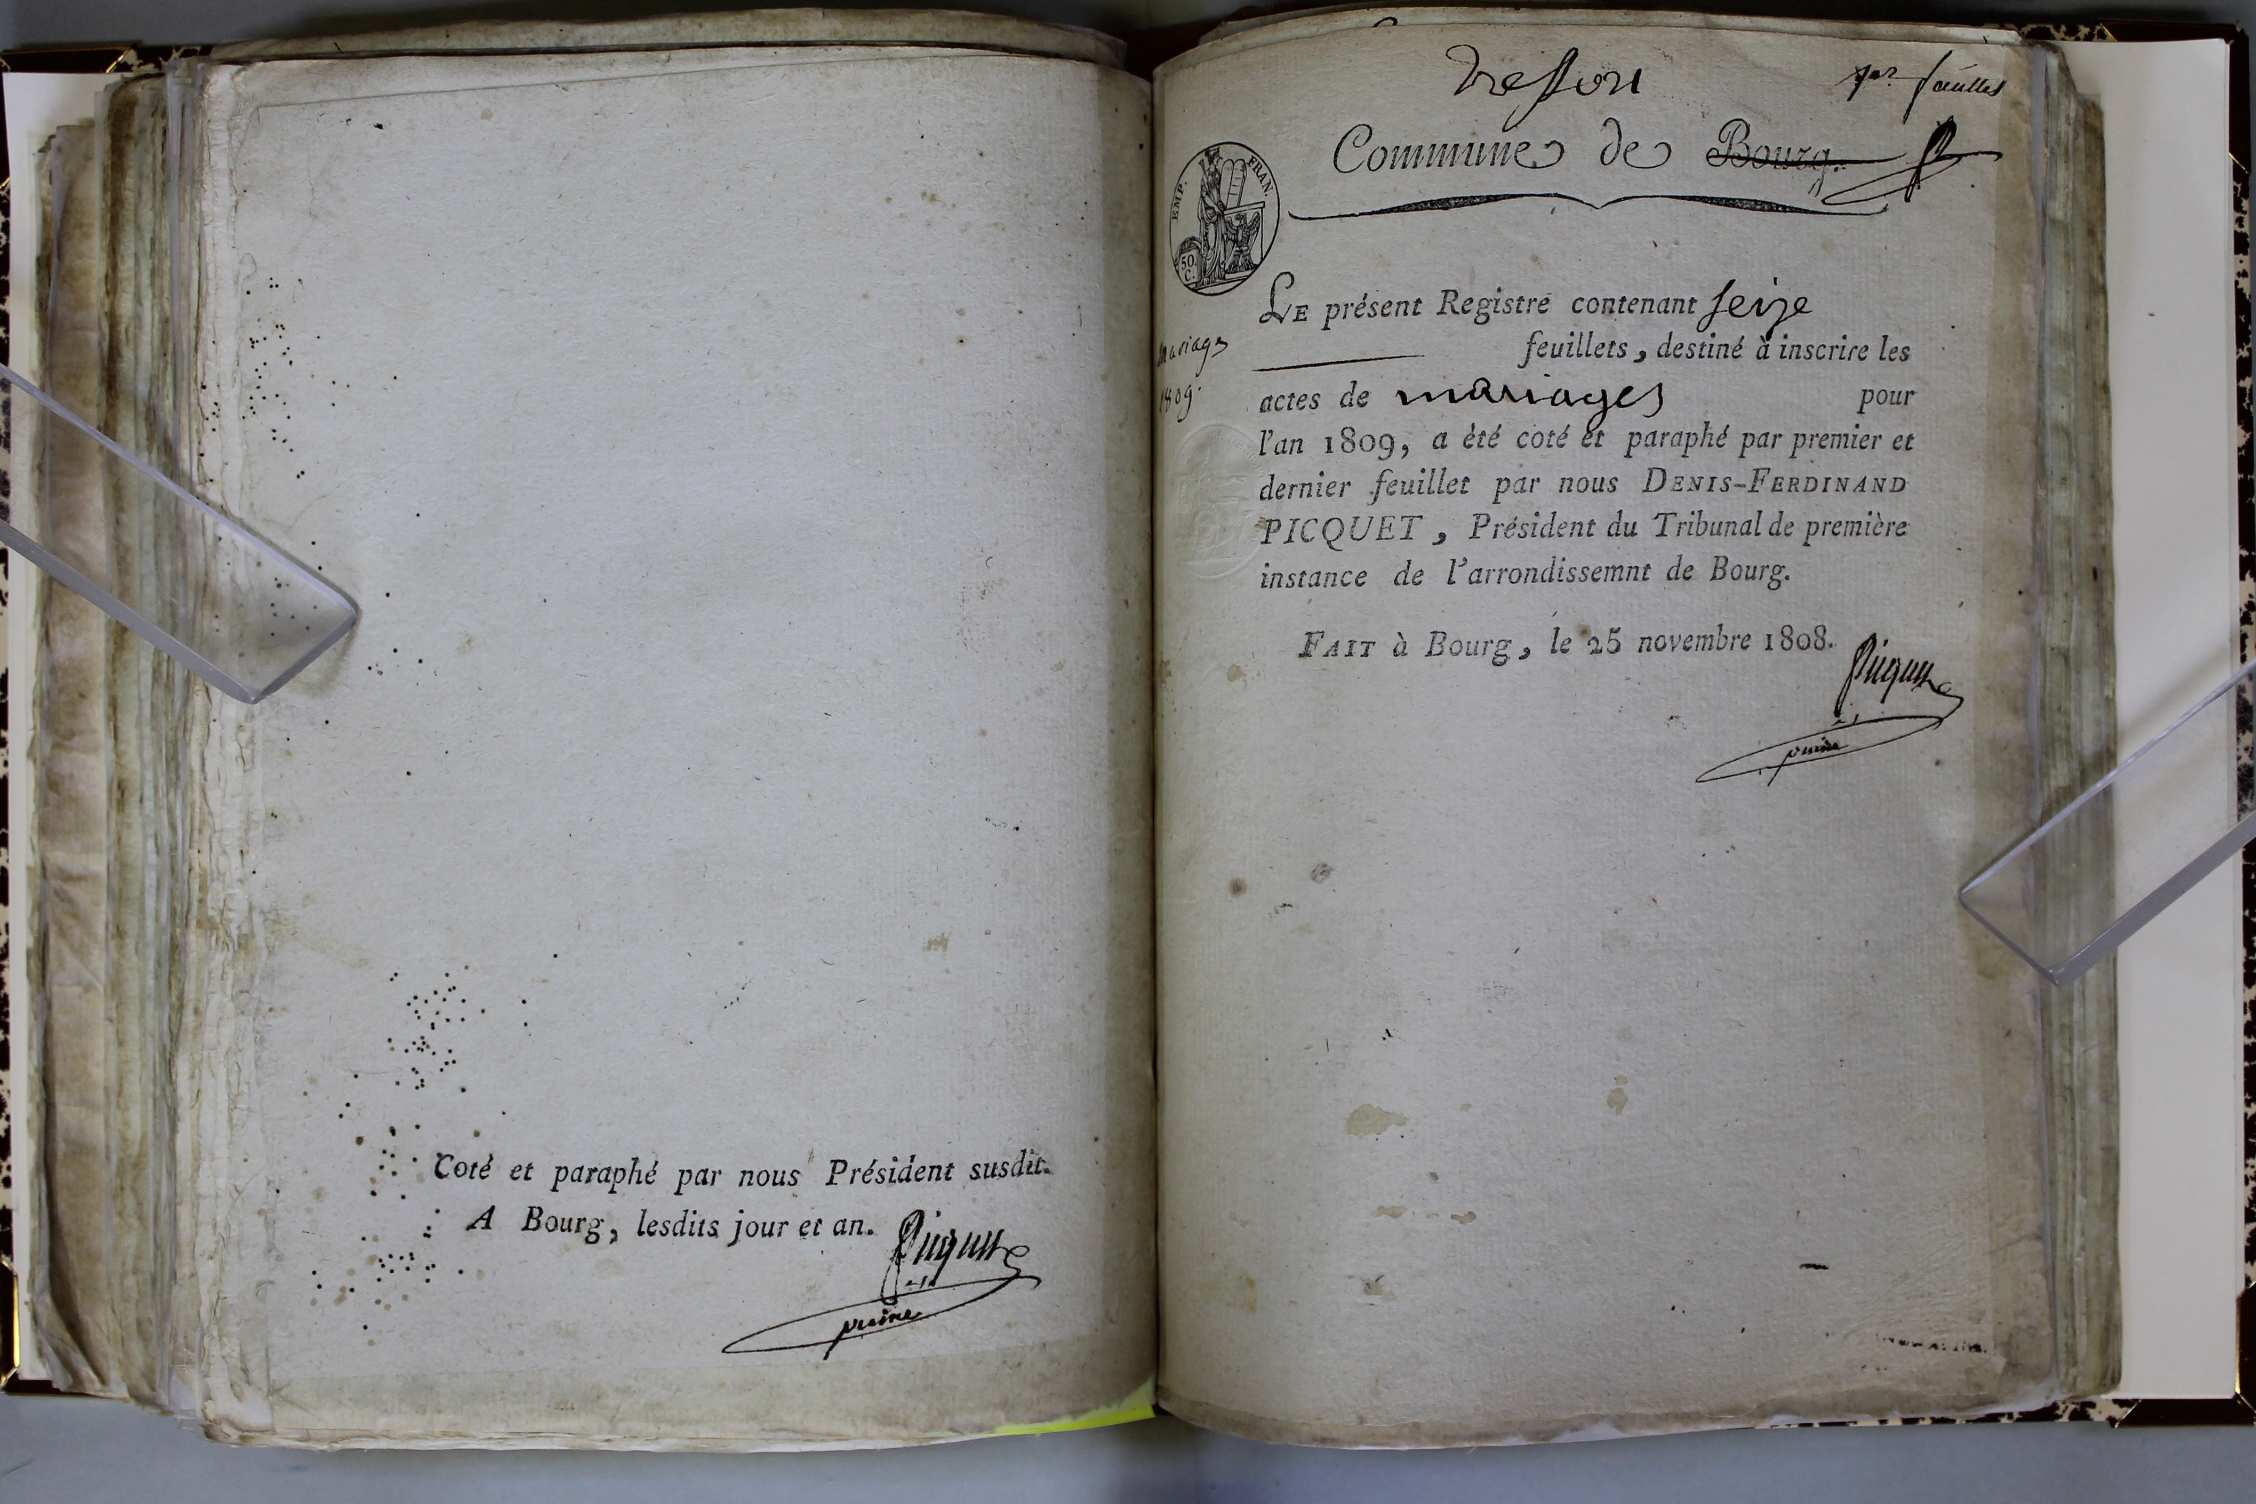 Coté et paraphé par nous Président susdit.
A Bourg, lesdits jour et an.
Picquet
Treffort
1er feuillet
Commune de Bourg.
EMP. FRAN.
50
C.
mariages
1809.
LE présent Registre contenant seize
feuillets, destiné à inscrire les
actes de mariages pour
l'an 1809, a été coté et paraphé par premier et
dernier feuillet par nous DENIS-FERDINAND
PICQUET, Président du Tribunal de première
instance de l'arrondissemnt de Bourg.
FAIT à Bourg, le 25 novembre 1808.
Picquet